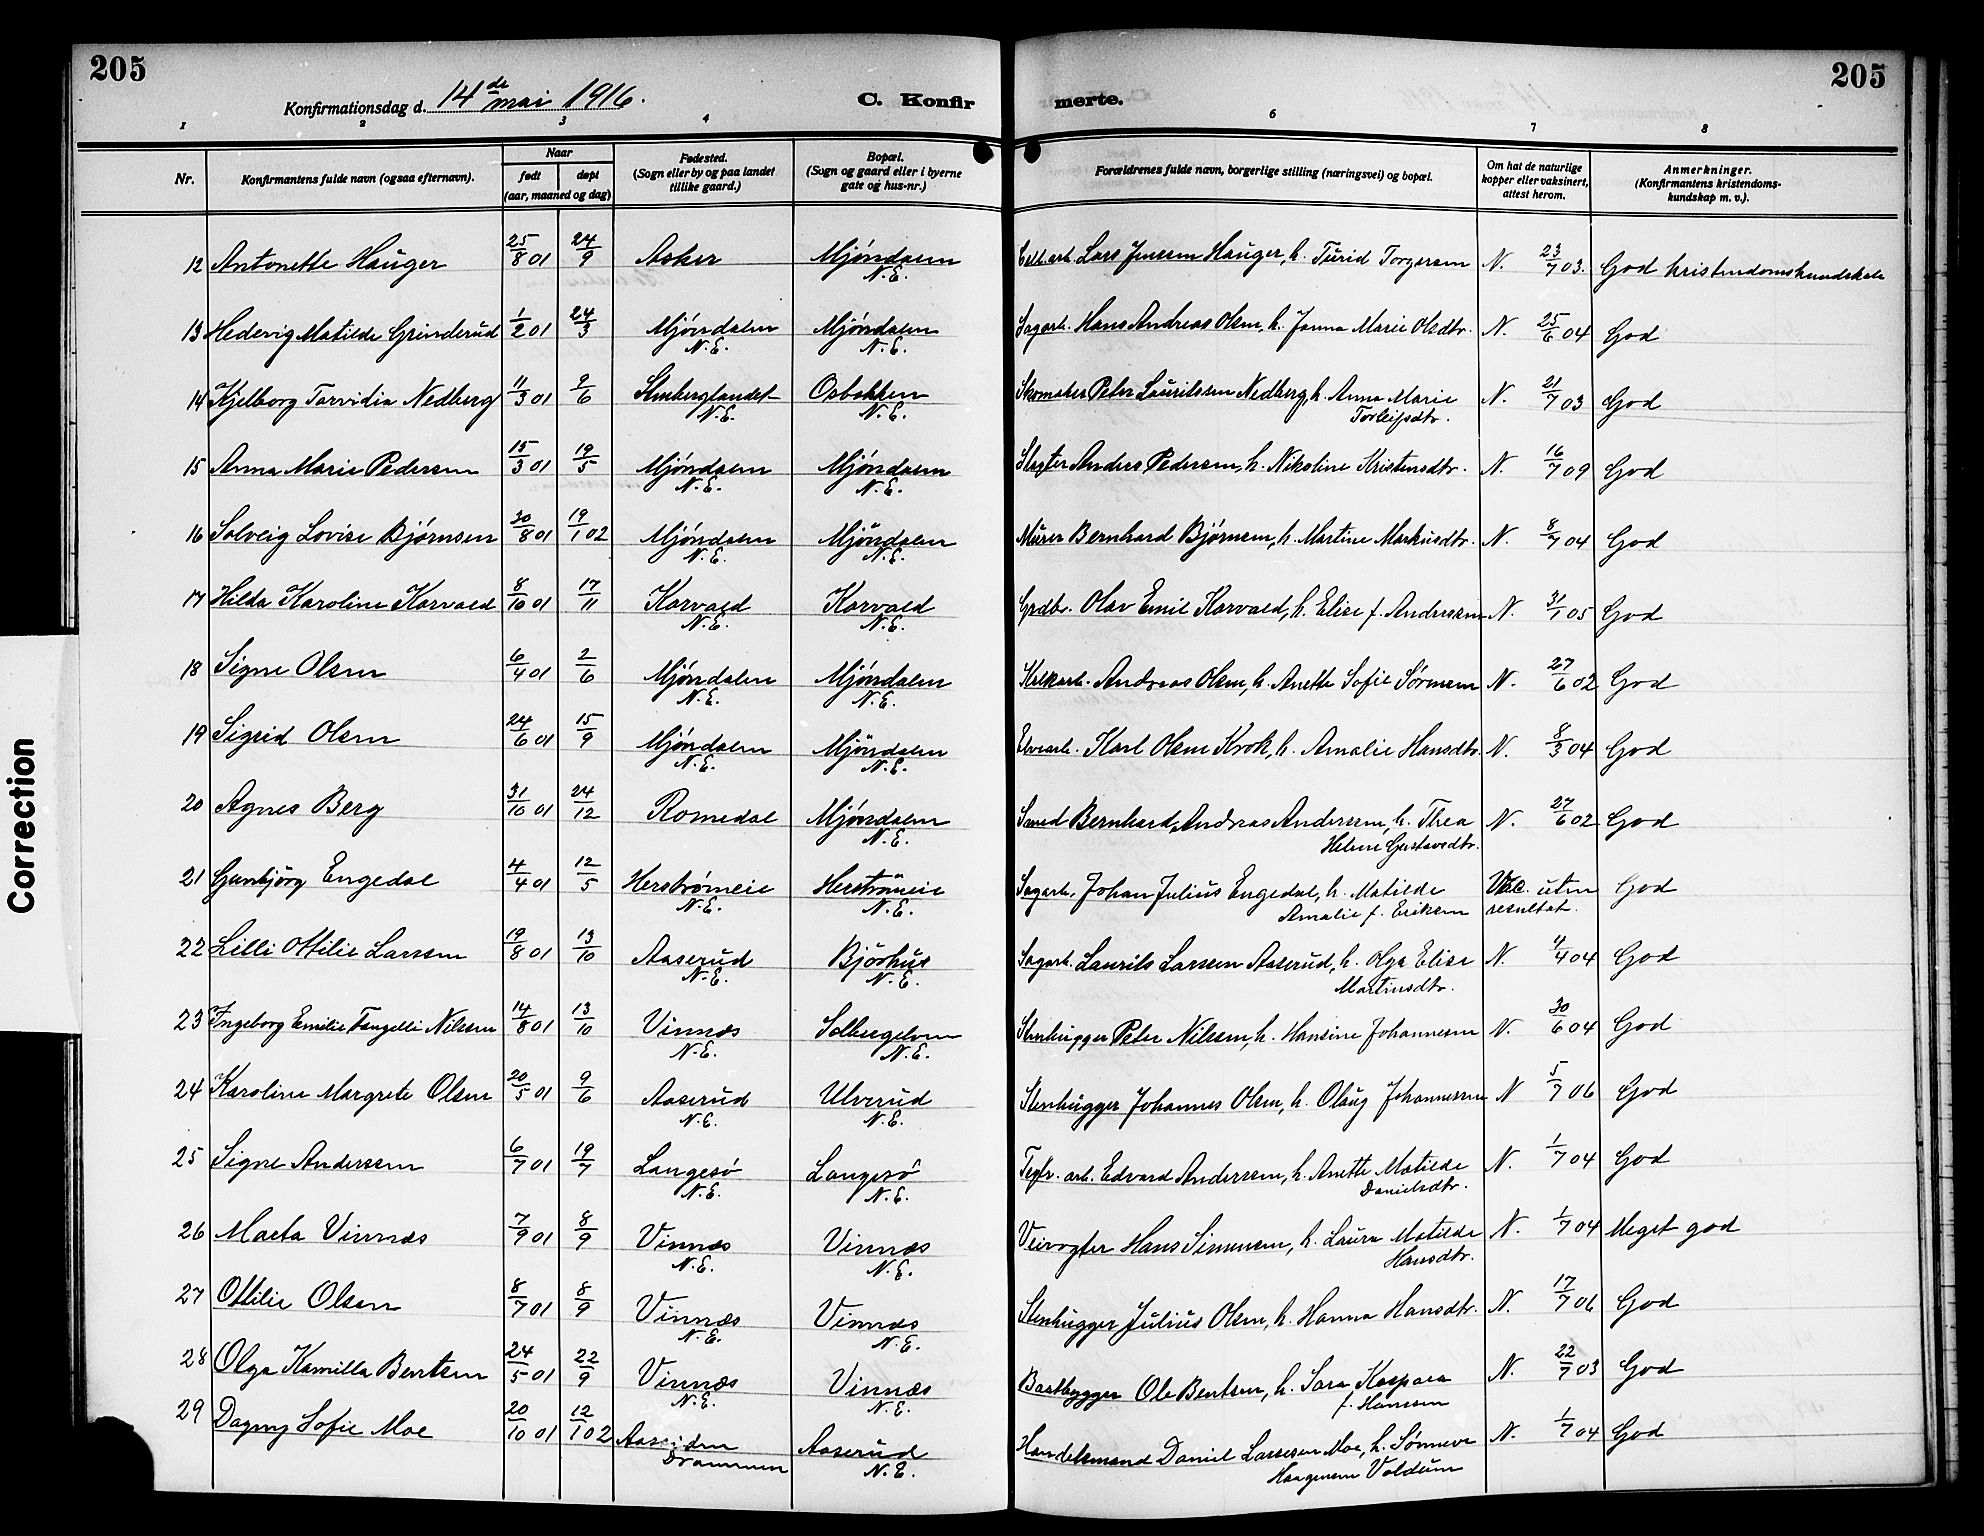 205
205
Konfirmationsdag d. 14de mai 1916.
C. Konfir
merte.
1 2 3 4 6 7 8
Nr.
Konfirmantens fulde navn (ogsaa efternavn).
Naar
født døpt
(aar, maaned og dag)
Fødested.
(Sogn eller by og paa landet
tillike gaard.)
Bopæl.
(Sogn og gaard eller i byerne
gate og hus-nr.)
Forældrenes fulde navn, borgerlige stilling (næringsvei) og bopæl.
Om hat de naturlige
kopper eller vaksinert,
attest herom.
Anmerkninger.
(Konfirmantens kristendoms-
kundskap m. v.).
12 Antonette Hauger 25/8 01 24/9 Asker Mjöndalen Lars Jensen Hauger, h. Turid Torgersen N. 23/7 03. God kristendomskundskab
N.E.
13 Hedevig Matilde Grinderud 1/2 01 24/3 Mjöndalen Mjöndalen Sagarb. Hans Andreas Olsen, h. Janna Marie Olsdtr. N. 25/6 04 God
N.E. N.E.
14 Kjelborg Torvidia Nedberg 11/3 01 9/6 Stenberglandet Osbakken Skomaker Peter Lauritssen Nedberg, h. Anna Marie N. 21/7 03 God
N.E. N.E. Torleifsdtr.
15 Anna Marie Pedersen 15/3 01 19/5 Mjöndalen Mjöndalen Slagter Anders Pedersen, h. Nikoline Kristensdtr. N. 16/7 09 God
N.E. N.E.
16 Solveig Lovise Bjørnsen 30/8 01 19/1 02 Mjöndalen Mjöndalen Murer Bernhard Bjørnsen, h. Martine Markusdtr. N. 8/7 04 God
N.E. N.E.
17 Hilda Karoline Korvald 8/10 01 17/11 Korvald Korvald Grdbr. Olav Emil Korvald, h. Elise f. Anderssen N. 31/1 05 God
N.E. N.E.
18 Signe Olsen 6/4 01 2/6 Mjöndalen Mjöndalen Kalkarb. Andreas Olsen, h. Anette Sofie Sørensen N. 27/6 02 God
N.E. N.E.
19 Sigrid Olsen 24/6 01 15/9 Mjöndalen Mjöndalen Elvearb. Karl Olsen Krok, h. Amalie Hansdtr. N. 8/3 04 God
N.E. N.E.
20 Agnes Berg 31/10 01 24/12 Romedal Mjöndalen Smed Bernhard Andreas Anderssen, h. Thea N. 27/6 02 God
N.E. Helene Gustavsdtr.
21 Gunbjörg Engedal 4/4 01 12/5 Herstrømeie Herstrømeie Sagarb. Johan Julius Engedal, h. Matilde Vac. uten God
N.E. N.E. Amalie f. Eriksen resultat.
22 Lilli Ottilie Larssen 19/8 01 13/10 Aaserud Bjørhus Sagarb. Laurits Larssen Aaserud, h. Olga Elise N. 4/4 04 God
N.E. N.E. Martinsdtr.
23 Ingeborg Emilie Nilssen 14/8 01 13/10 Vinnæs Solbergelven Stenhugger Peter Nilssen, h. Hansine Johannesen N. 30/6 04 God
N.E. N.E.
24 Karoline Margrete Olsen 20/5 01 9/6 Aaserud Ulverud Stenhugger Johannes Olsen, h. Olaug Johannessen N 5/7 06 God
N.E. N.E.
25 Signe Anderssen 6/7 01 19/7 Langesö Langesö Teglv. arb. Edvard Anderssen, h. Anette Matilde N. 1/7 04 God
N.E. N.E. Danielsdtr.
26 Marta Vinnæs 7/9 01 8/9 Vinnæs Vinnæs Veivogter Hans Simensen, h. Laura Matilde N. 1/7 04 Meget god
N.E. N.E. Hansdtr.
27 Ottilie Olsen 8/7 01 8/9 Vinnæs Vinnæs Stenhugger Julius Olsen, h. Hanna Hansdtr. N. 17/7 06 God
N.E. N.E.
28 Olga Kamilla Bentsen 24/5 01 22/9 Vinnæs Vinnæs Baatbygger Ole Bentsen, h. Sara Kaspara N. 22/7 03 God
N.E. N.E. f. Hanssen
29 Dagny Sofie Moe 20/10 01 12/1 02 Aassiden Aaserud Handelsmand Daniel Larssen Moe, h. Sønneve N. 1/7 04 God
Drammen N.E. Haagensen Voldum
Correction